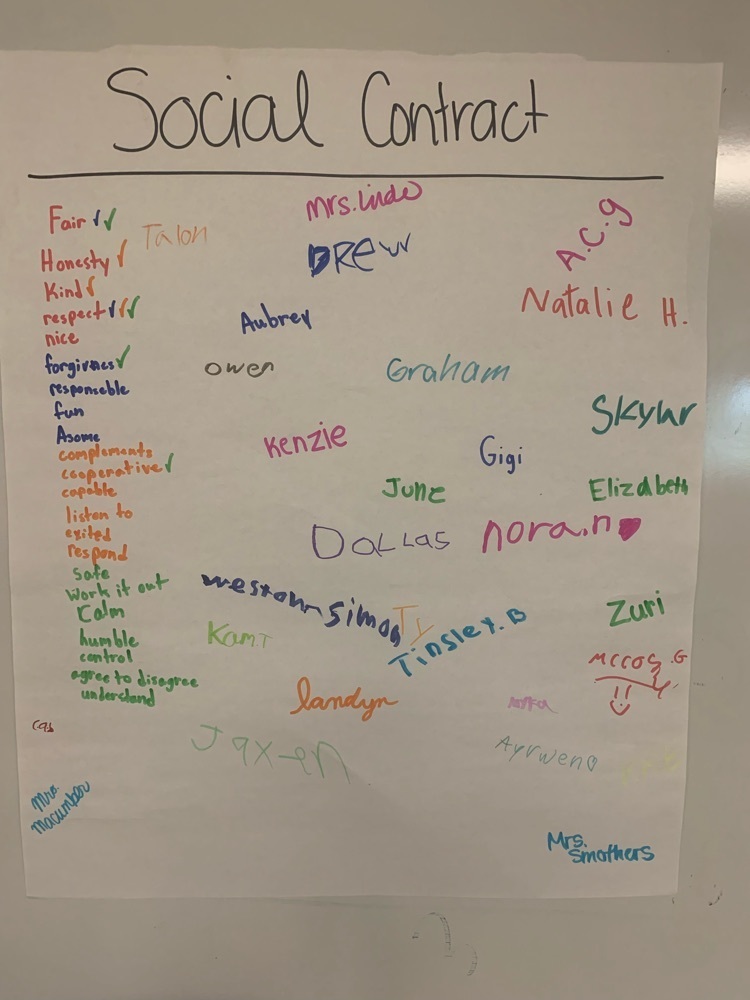 Social Contract
Fair
Honesty
Kind
respect
nice
forgivnes
responseble
fun
Asome
complements
cooperative
capable
listen to
exited
respond
Safe
Work it out
Calm
humble
control
agree to disagree
understand
Talon
Mrs. Linde
DREW
A.C.g
Natalie H.
Aubrey
owen
Graham
Skylar
Kenzie
Gigi
June
Elizabeth
DaLLas
nora.n
weston
simon
Ty
Tinsley.B
Zuri
Kamt
Mccoy.G
landyn
Ayrweno
Mrs.
Macumber
Mrs.
Smothers